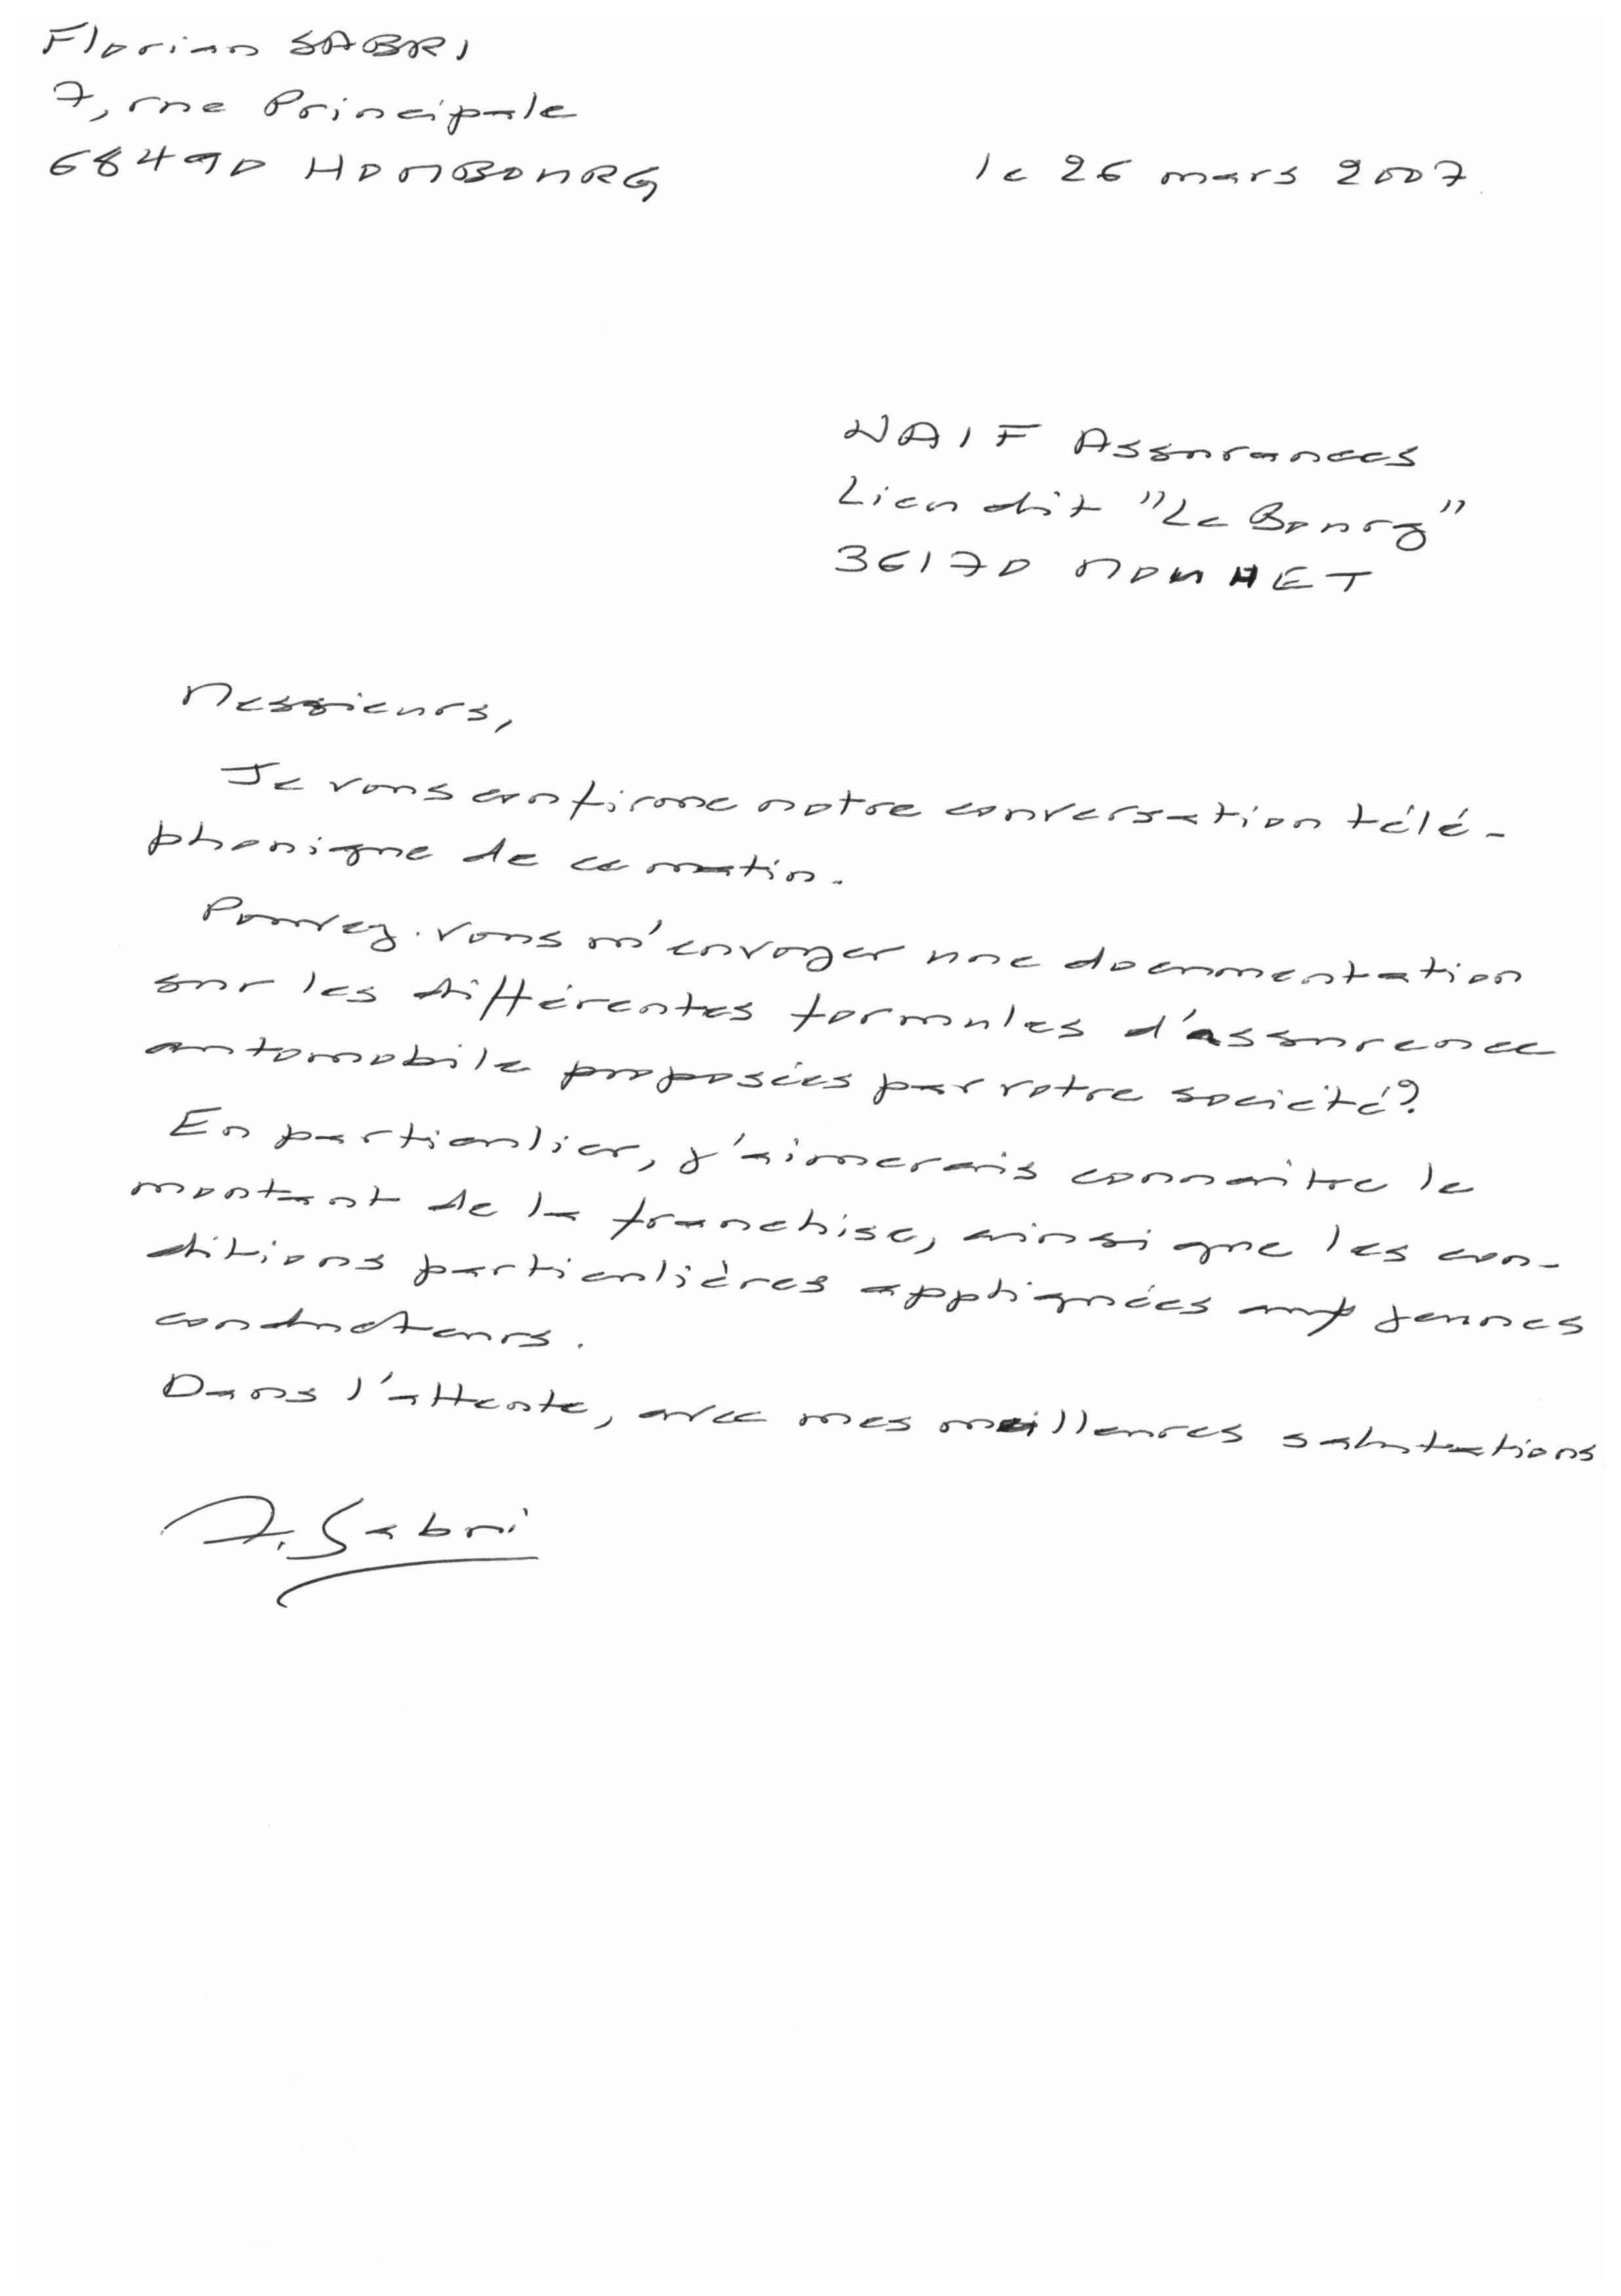 Florian SABRI
7, rue Principale
68490 HOMBOURG
le 26 mars 2007
NAIF Assurances
Lieu dit "Le Bourg"
36170 MOUHET
Messieurs,
Je vous confirme notre conversation télé-
phonique de ce matin.
Pouvez-vous m'envoyer une documentation
sur les différentes formules d'assurence
automobile proposées par votre société?
En particulier, j'aimerais connaître le
montant de la franchise, ainsi que les con-
ditions particulières appliquées aux jeunes
conducteurs.
Dans l'attente, avec mes meilleures salutations
F. Sabri